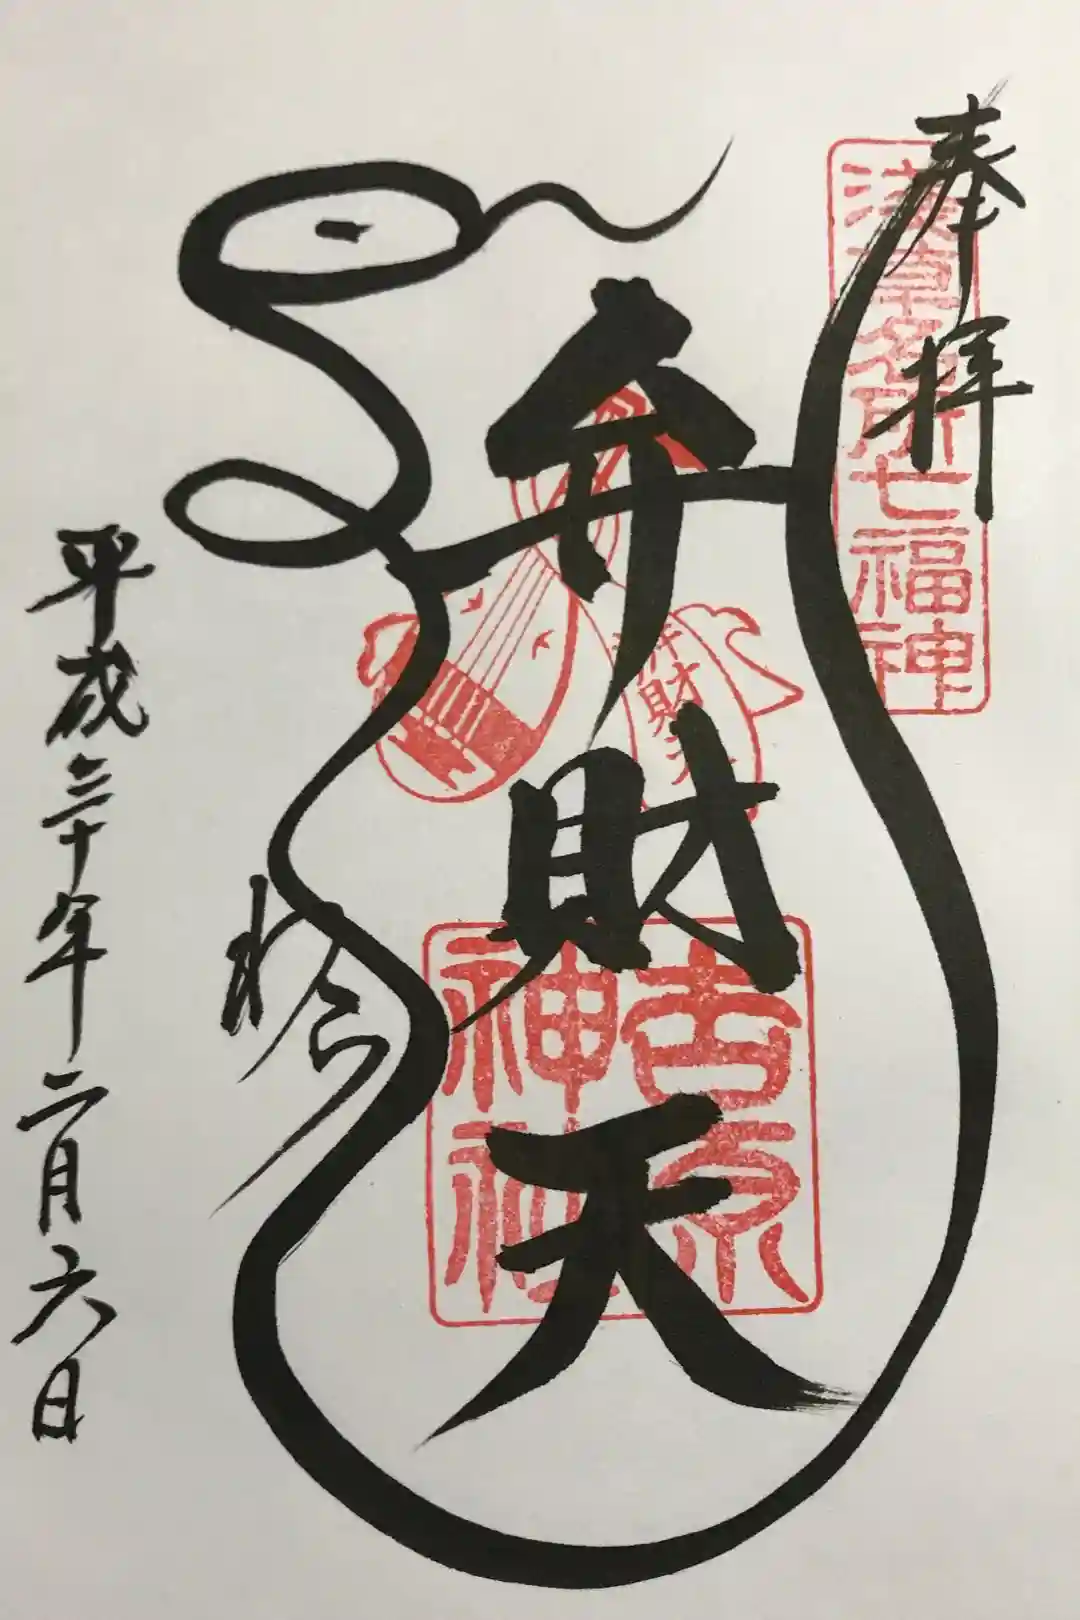 奉拝
浅草名所七福神
弁財天
弁財天
吉原
神社
平成三十年二月六日